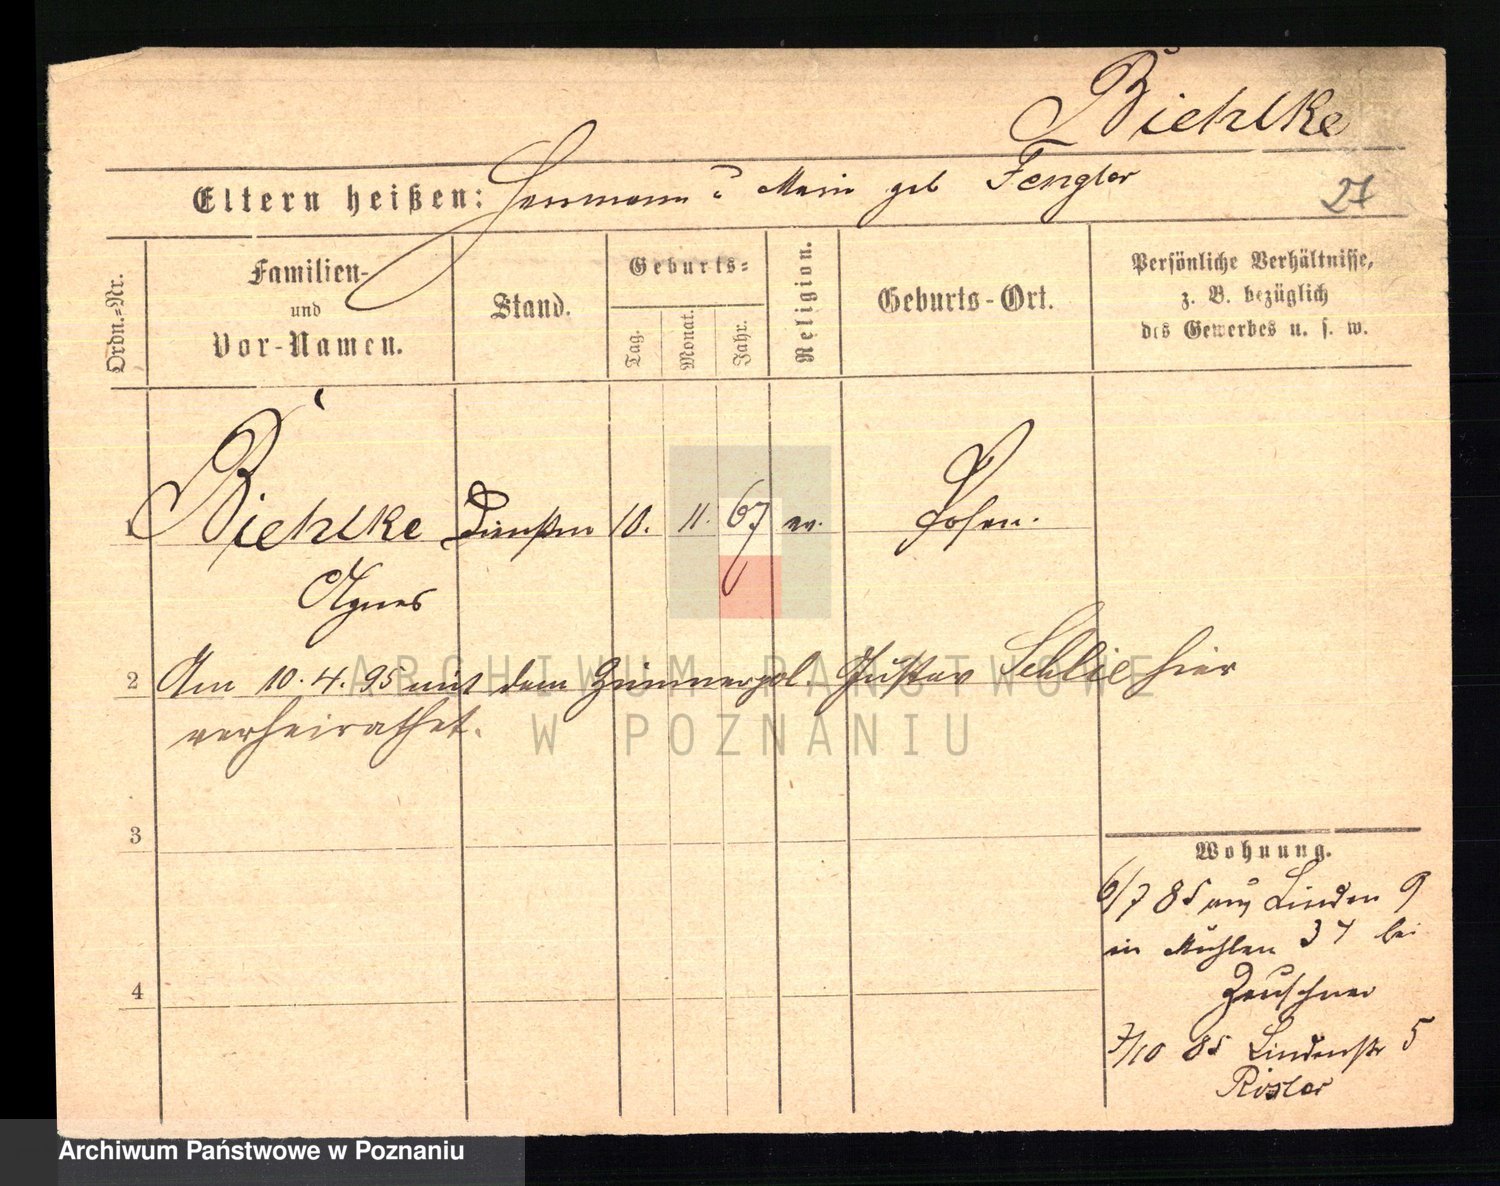 Biehlke
Eltern heißen: Herrmann u Marie geb Fengler
27
Ordn.-Nr.
Familien-
und
Vor-Namen.
Stand.
Geburts-
Tag.
Monat.
Jahr.
Religion.
Geburts-Ort.
Persönliche Verhältnisse,
z. B. bezüglich
des Gewerbes u. s. w.
1 Biehlke Dienstm 10. 11. 67 ev. Posen.
Agnes
2 Am 10.4.95 mit dem Zimmerpol. Gustav Schlie hier
verheirathet.
3
4
Wohnung.
6/7 85 aus Linden 9
in Mühlen 34 bei
Zeuschner
7/10 85 Lindenstr 5
Rösler
ARCHIWUM PAŃSTWOWE
W POZNANIU
Archiwum Państwowe w Poznaniu